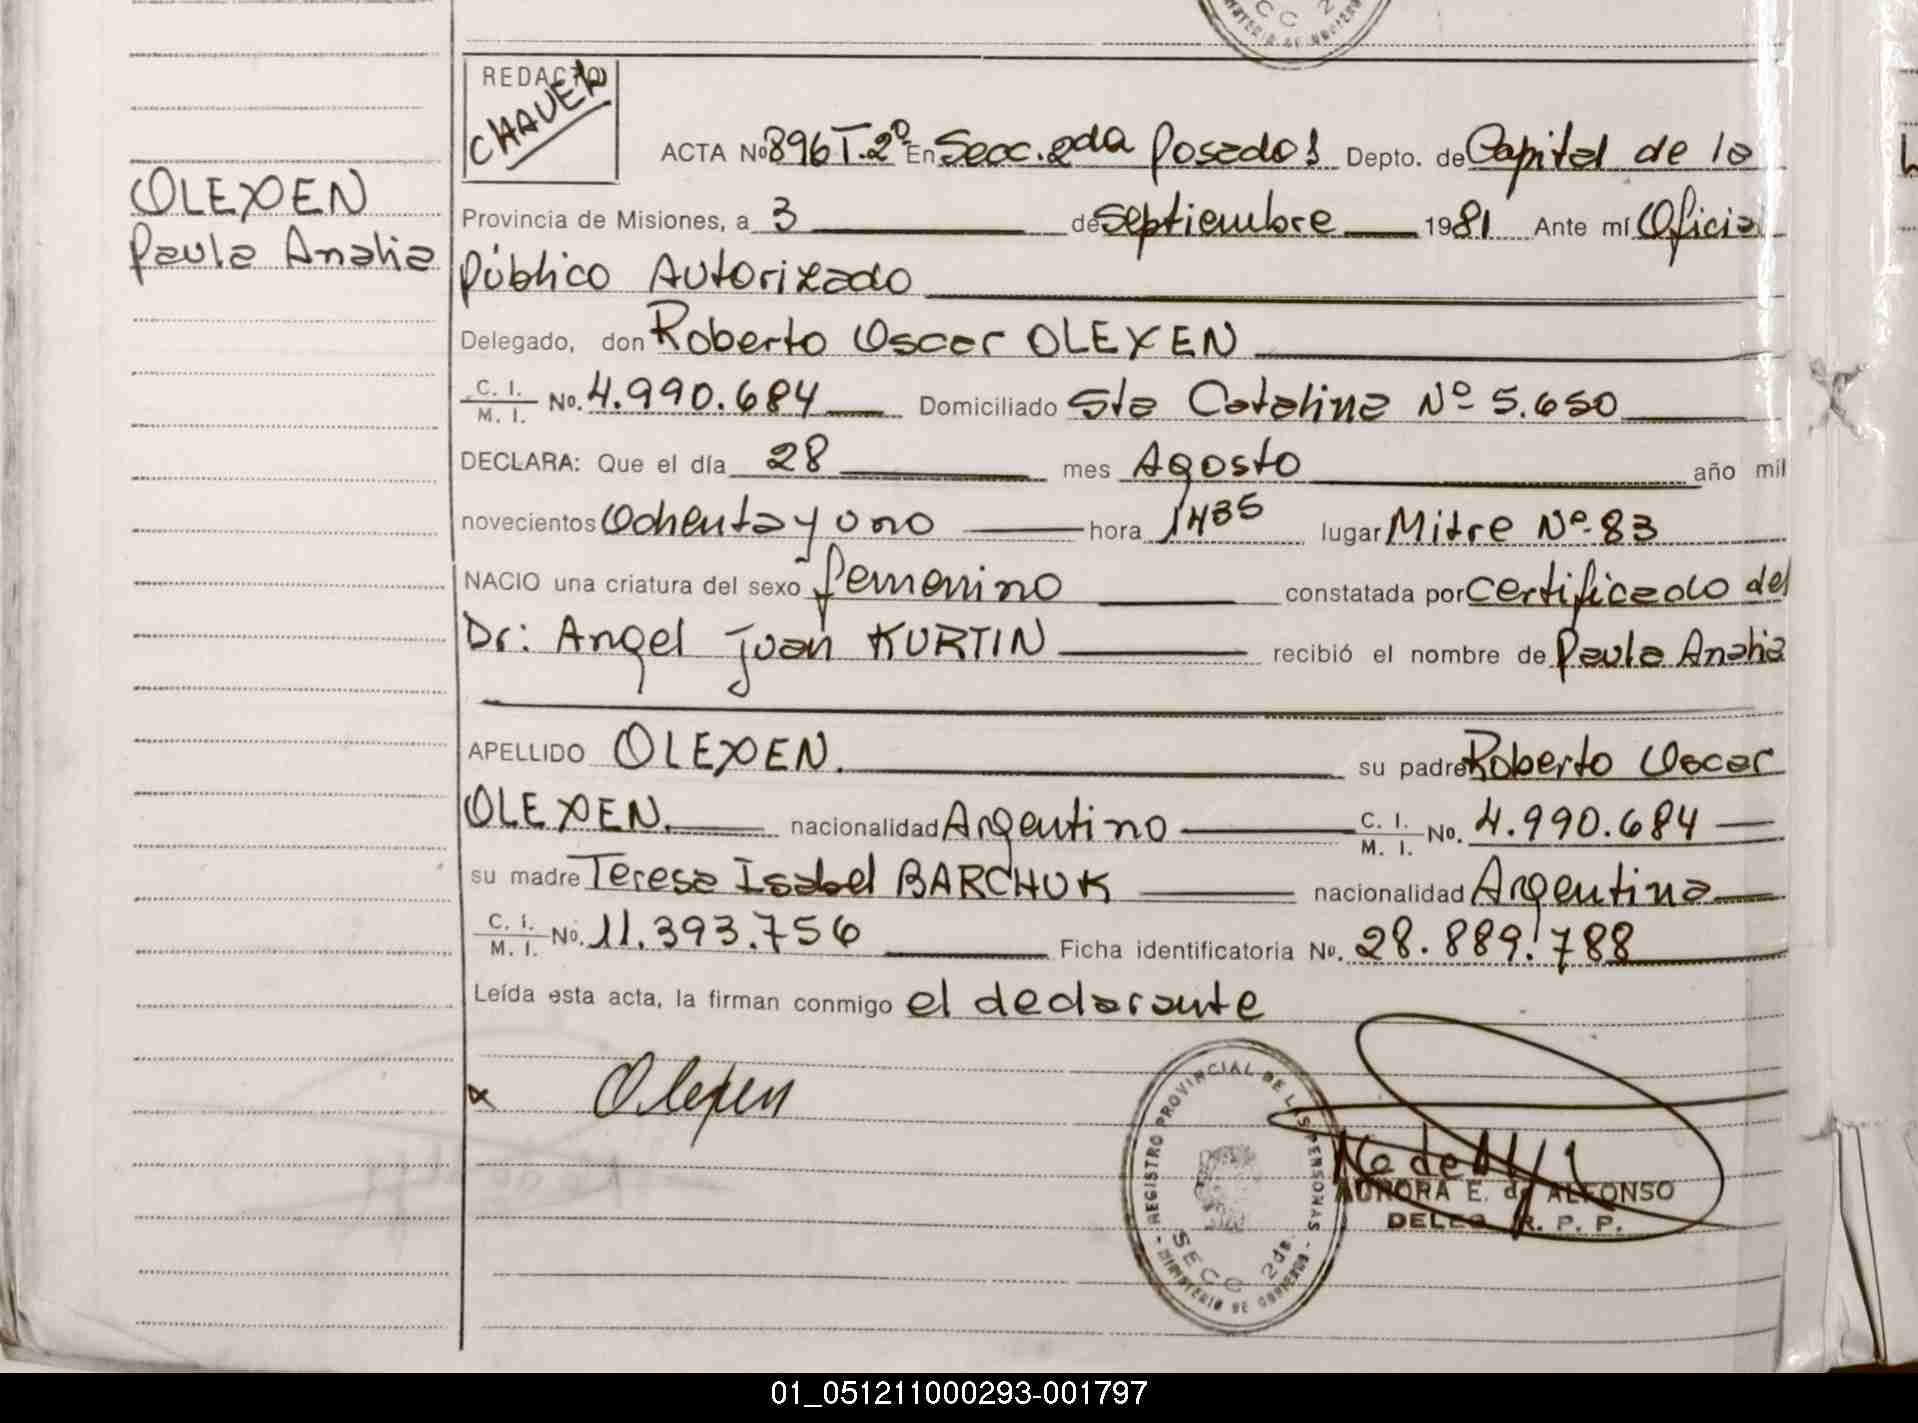 REDACTO
CHAVEZ
ACTA Nº 896 T. 2º En Secc. 2da Posadas Depto. de Capital de la
OLEXEN
Paula Analia
Provincia de Misiones, a 3 de Septiembre 1981 Ante mí Oficial
Público Autorizado
Delegado, don Roberto Oscar OLEXEN
C. I.
M. I. No. 4.990.684 Domiciliado Sta Catalina Nº 5.650
DECLARA: Que el día 28 mes Agosto año mil
novecientos Ochenta y uno hora 1435 lugar Mitre Nº 83
NACIO una criatura del sexo femenino constatada por certificado del
Dr: Angel Juan KURTIN recibió el nombre de Paula Analia
APELLIDO OLEXEN. su padre Roberto Oscar
OLEXEN. nacionalidad Argentino C. I.
M. I. No. 4.990.684
su madre Teresa Isabel BARCHUK nacionalidad Argentina
C. I.
M. I. No. 11.393.756 Ficha identificatoria No. 28.889.788
Leída esta acta, la firman conmigo el declarante
x Olexen
REGISTRO PROVINCIAL DE LAS PERSONAS
SECC 2da.
MINISTERIO DE GOBIERNO
AURORA E. de ALFONSO
DELEG. R. P. P.
01_051211000293-001797